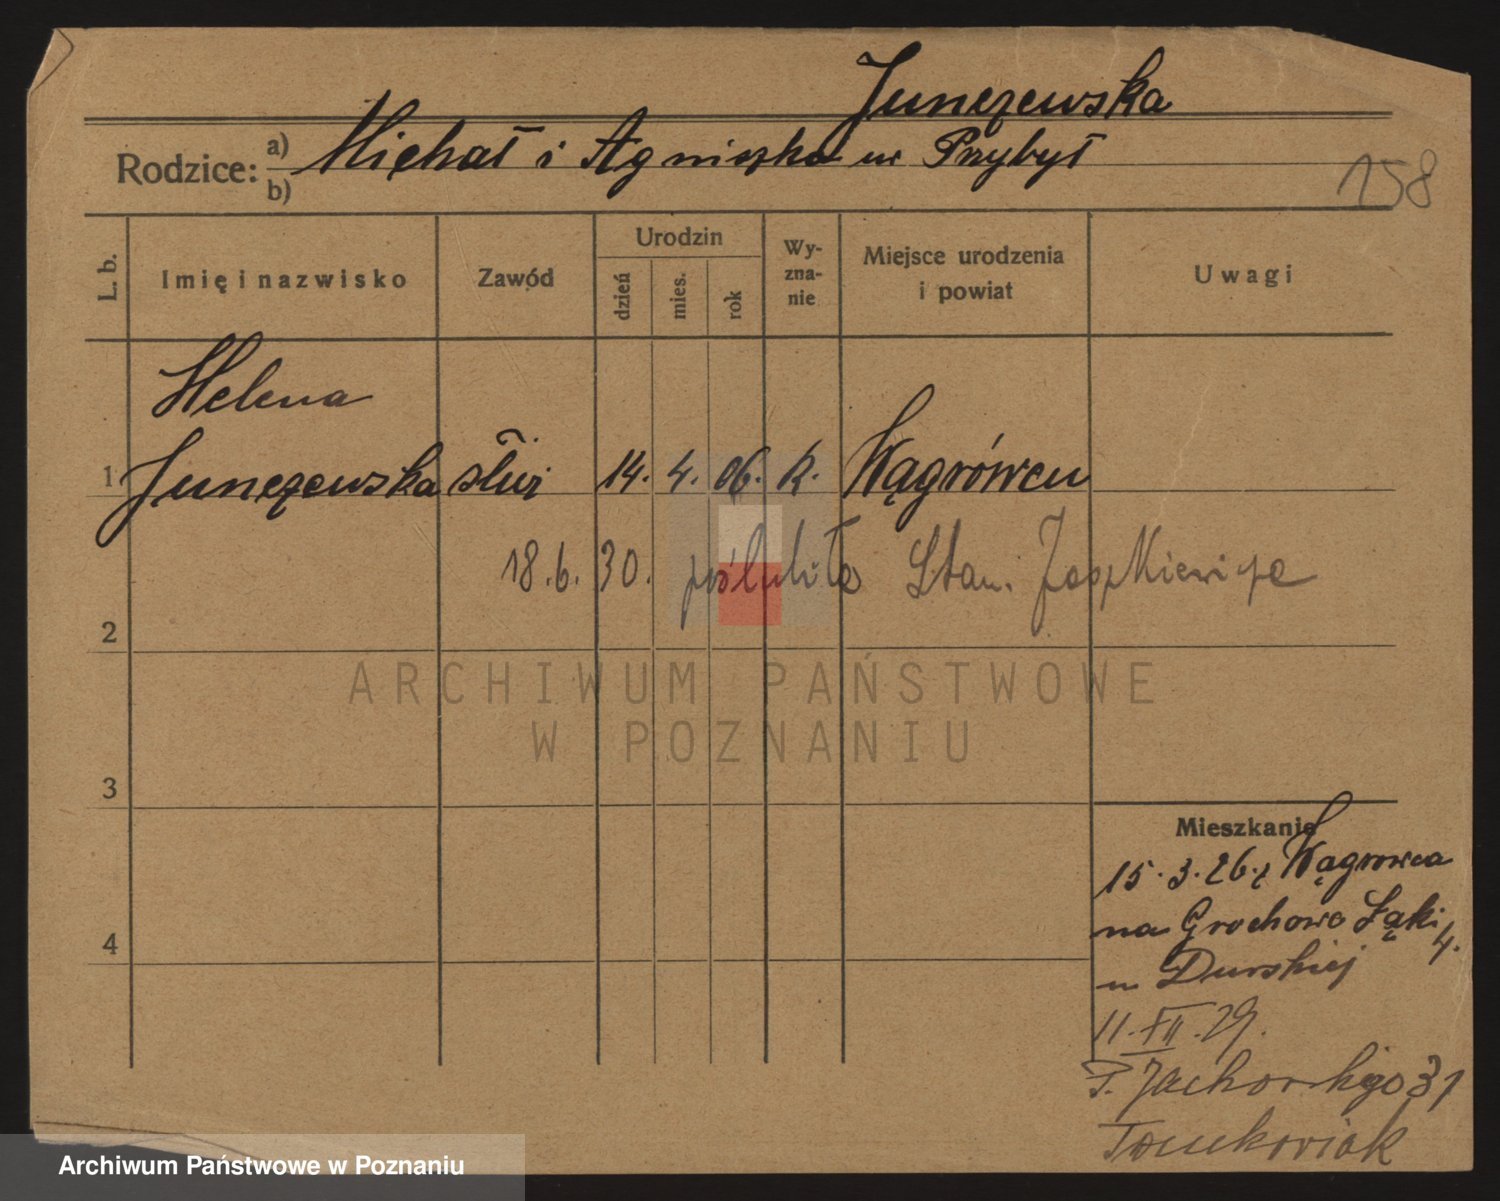 Junczewska
Rodzice: a) Michał i Agnieszka ur Przybył
b)
158
L. b.
Imię i nazwisko
Zawód
Urodzin
dzień
mies.
rok
Wy-
zna-
nie
Miejsce urodzenia
i powiat
Uwagi
Helena
1 Junczewska służ 14. 4. 06. k. Wągrówcu
18.6.30. poślubiła Stan.
2
ARCHIWUM PAŃSTWOWE
W POZNANIU
3
Mieszkanie
15.3.26. z Wągrowca
na Grochowe Łąki 4.
u Durskiej
4
11.XII.29.
31
Tomkowiak
Archiwum Państwowe w Poznaniu